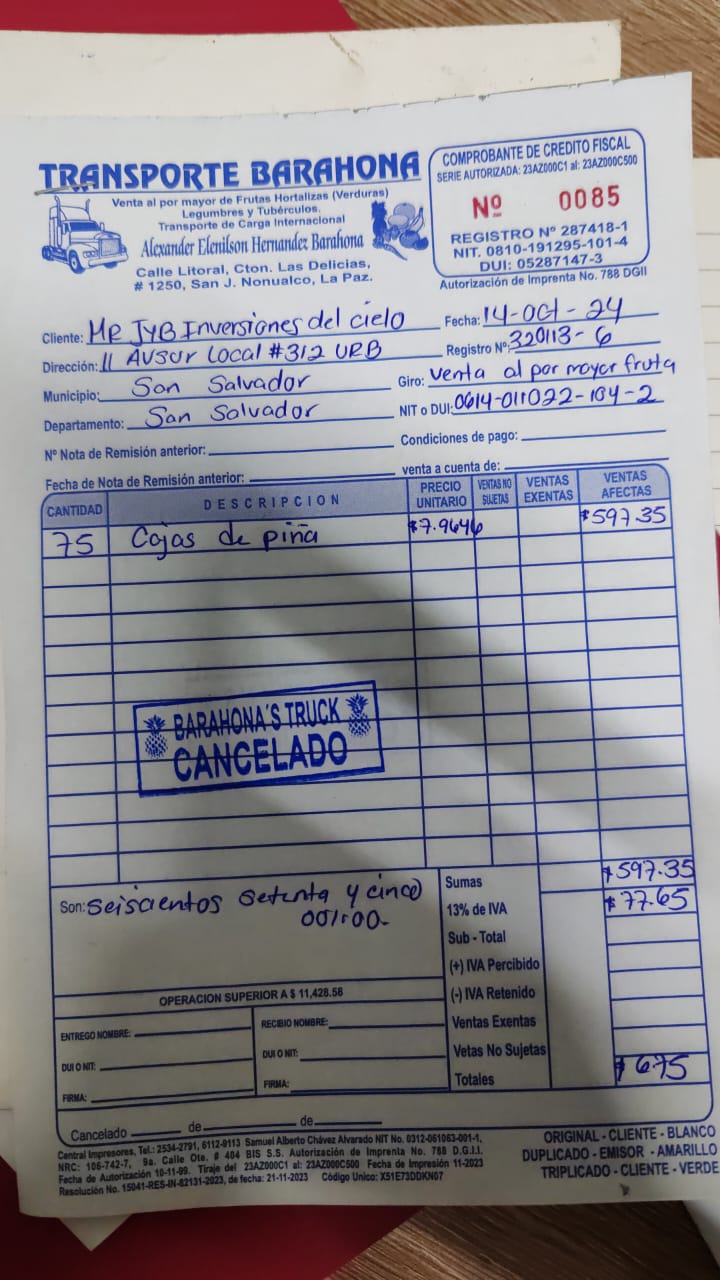 TRANSPORTE BARAHONA
Venta al por mayor de Frutas Hortalizas (Verduras)
Legumbres y Tubérculos.
Transporte de Carga Internacional
Alexander Elenilson Hernandez Barahona
Calle Litoral, Cton. Las Delicias,
# 1250, San J. Nonualco, La Paz.
COMPROBANTE DE CREDITO FISCAL
SERIE AUTORIZADA: 23AZ000C1 al: 23AZ000C500
Nº 0085
REGISTRO Nº 287418-1
NIT. 0810-191295-101-4
DUI: 05287147-3
Autorización de Imprenta No. 788 DGII
Cliente: MR JYB Inversiones del cielo
Fecha: 14-Oct-24
Dirección: 11 AVSUR Local #312 URB
Registro Nº: 320113-6
Municipio: San Salvador
Giro: venta al por mayor fruta
Departamento: San Salvador
NIT o DUI: 0614-011022-104-2
Nº Nota de Remisión anterior:
Condiciones de pago:
Fecha de Nota de Remisión anterior:
venta a cuenta de:
CANTIDAD DESCRIPCION PRECIO UNITARIO VENTAS NO SUJETAS VENTAS EXENTAS VENTAS AFECTAS
75 Cajas de piña $7.9646 $597.35
BARAHONA´S TRUCK
CANCELADO
Son: Seiscientos Setenta y cinco
00/100-
Sumas $597.35
13% de IVA $77.65
Sub - Total
(+) IVA Percibido
(-) IVA Retenido
Ventas Exentas
Vetas No Sujetas
Totales $675
OPERACION SUPERIOR A $ 11,428.58
ENTREGO NOMBRE: RECIBIO NOMBRE:
DUI O NIT: DUI O NIT:
FIRMA: FIRMA:
Cancelado de de
Central Impresores, Tel.: 2534-2791, 6112-9113 Samuel Alberto Chávez Alvarado NIT No. 0312-061063-001-1,
NRC: 106-742-7, 9a. Calle Ote. # 404 BIS S.S. Autorización de Imprenta No. 788 D.G.I.I.
Fecha de Autorización 10-11-99. Tiraje del 23AZ000C1 al: 23AZ000C500 Fecha de Impresión 11-2023
Resolución No. 15041-RES-IN-82131-2023, de fecha: 21-11-2023 Código Unico: X51E73DDKN07
ORIGINAL - CLIENTE - BLANCO
DUPLICADO - EMISOR - AMARILLO
TRIPLICADO - CLIENTE - VERDE